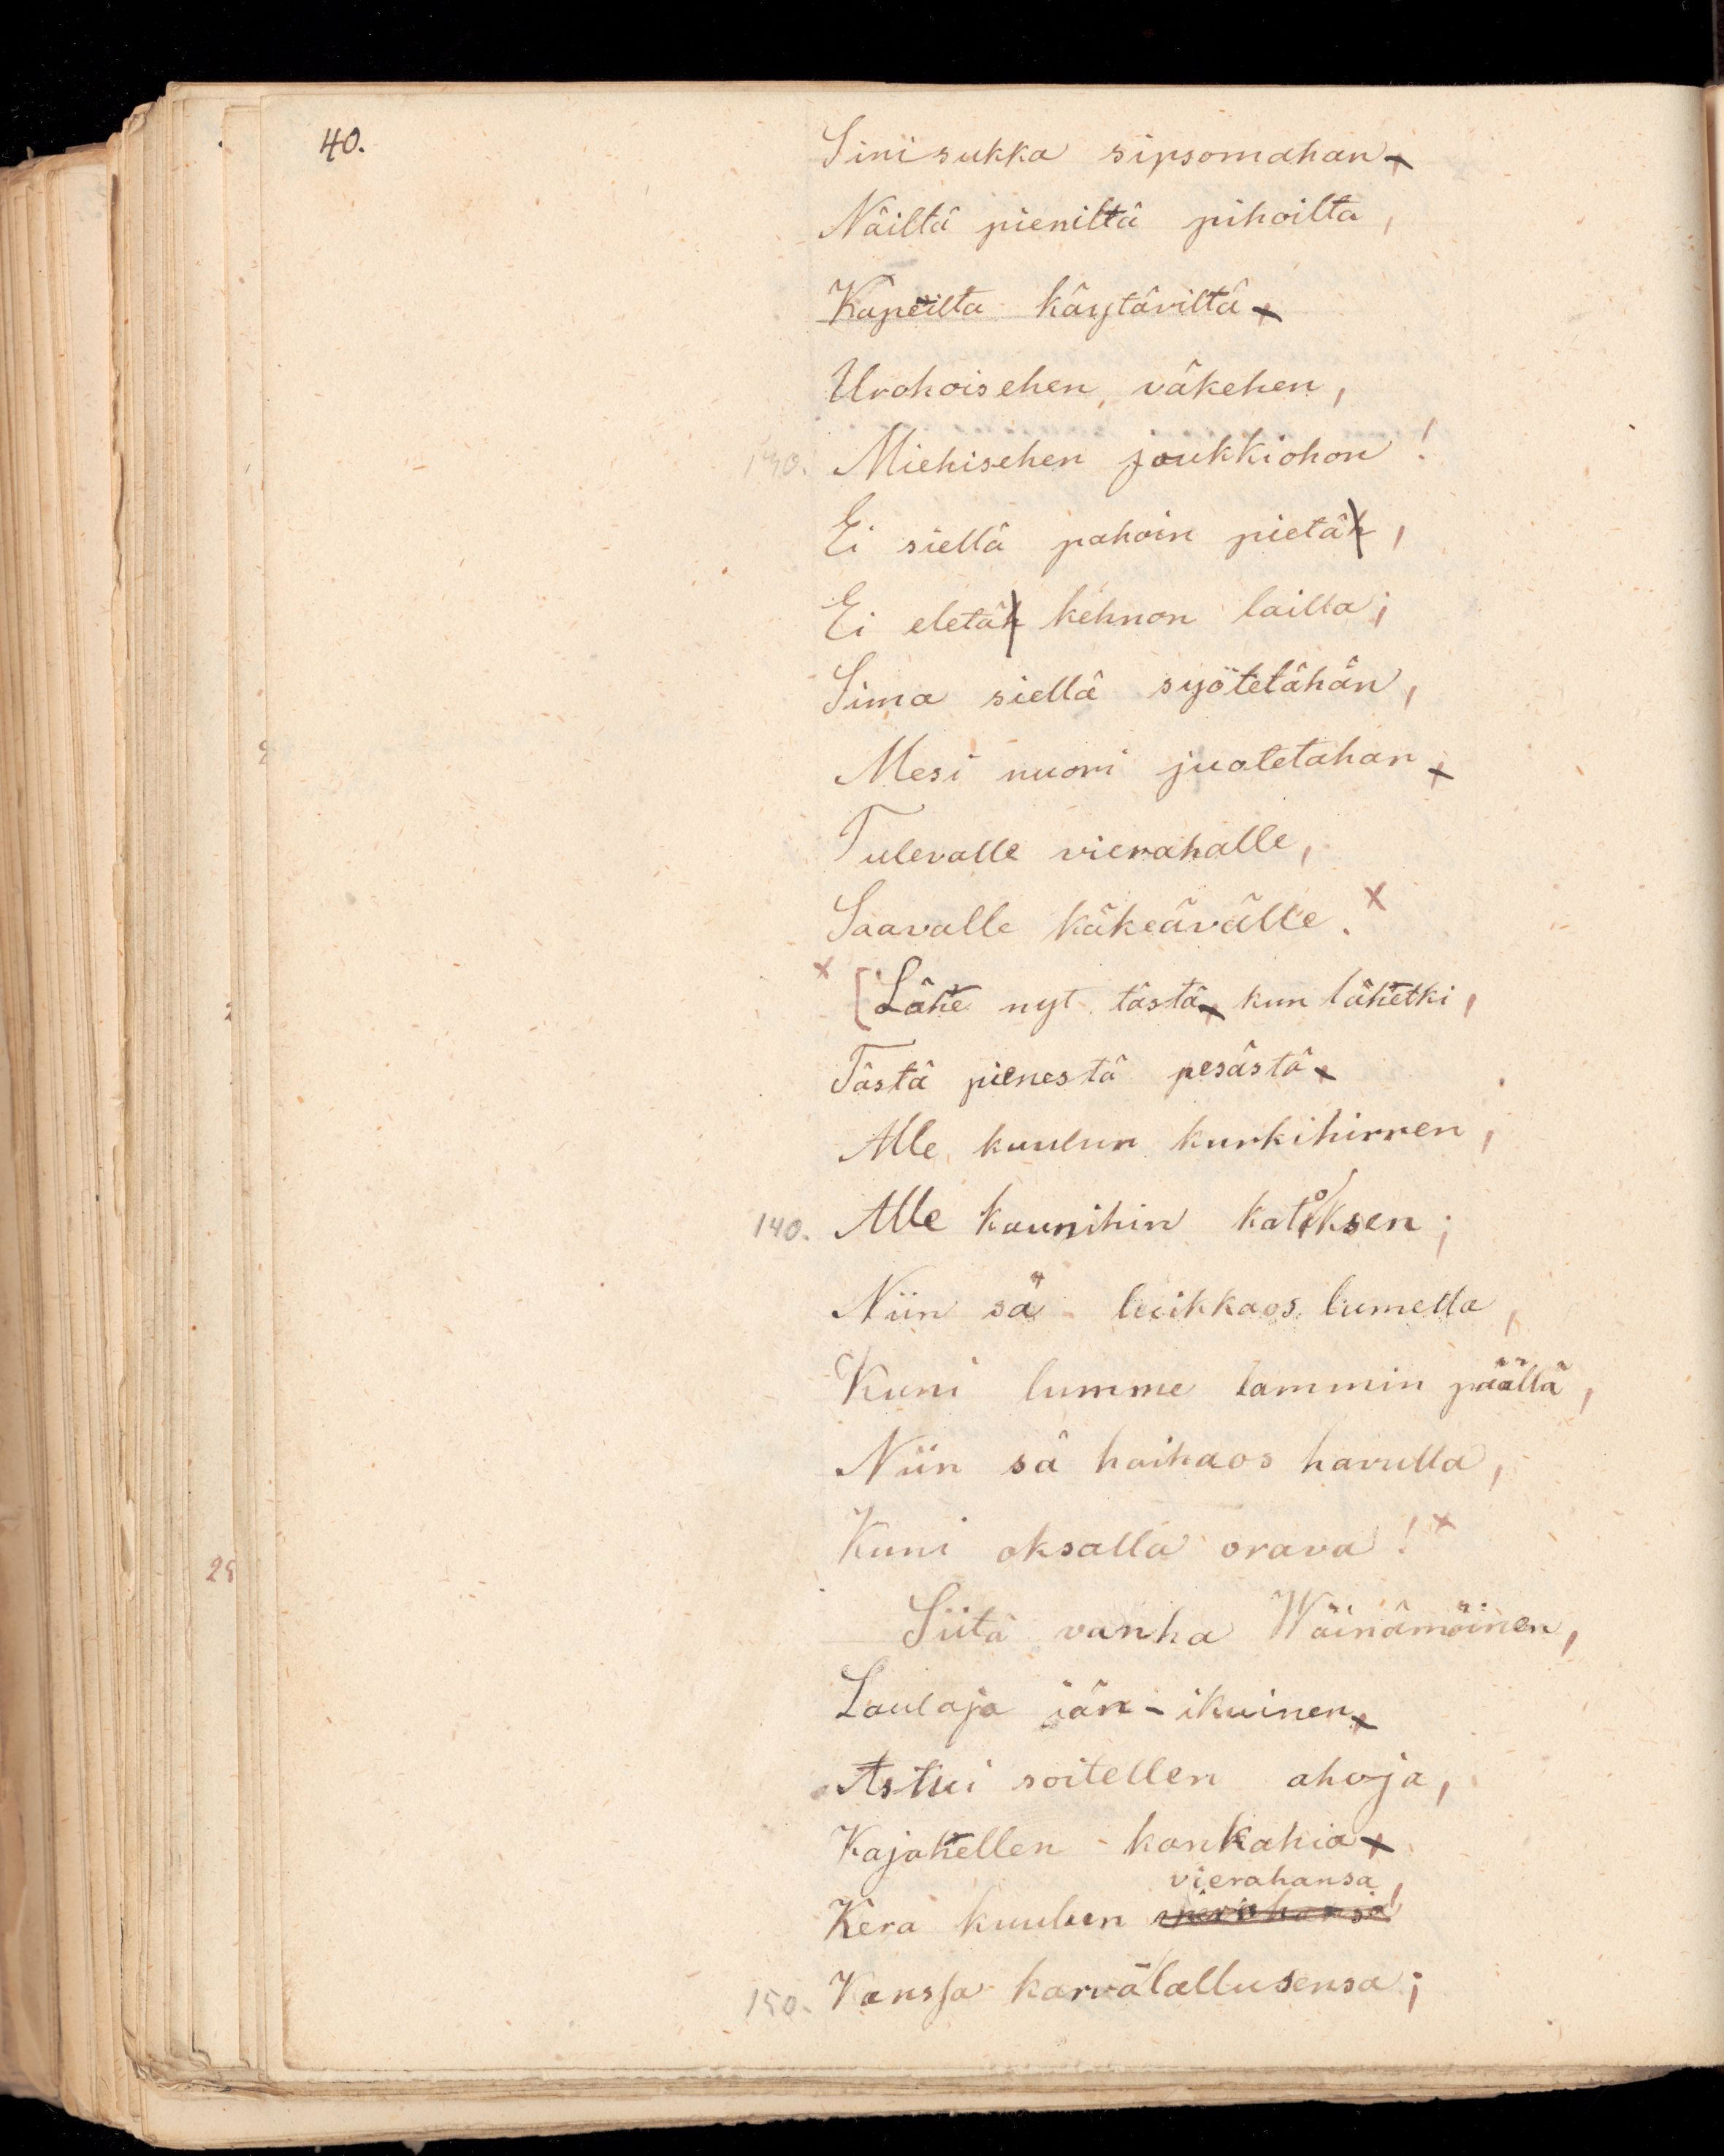 40.
Sinisukka sipsomahan
Näiltä pieniltä pihoilta,
Kapeilta käytäviltä
Urohoisehen väkehen,
130. Miehisehen joukkiohon!
Ei siellä pahoin pietä,
Ei eletä kehnon lailla;
Sima siellä syötetähän,
Mesi nuori juotetahan
Tulevalle vierahalle,
Saavalle käkeävälle. x
x [Lähe nyt tästä kun lähetki,
Tästä pienestä pesästä
Alle kuulun kurkihirren,
140. Alle kaunihin katoksen;
Niin sä luikkaos lumella,
Kuni lumme lammin päällä,
Niin sä haihaos havulla,
Kuni oksalla orava! x
Siitä vanha Wäinämöinen,
Laulaja iän-ikuinen
Astui soitellen ahoja,
Kajahellen kankahia
vierahansa,
Kera kuulun vierahansa
150. Kanssa karvalallusensa;
25